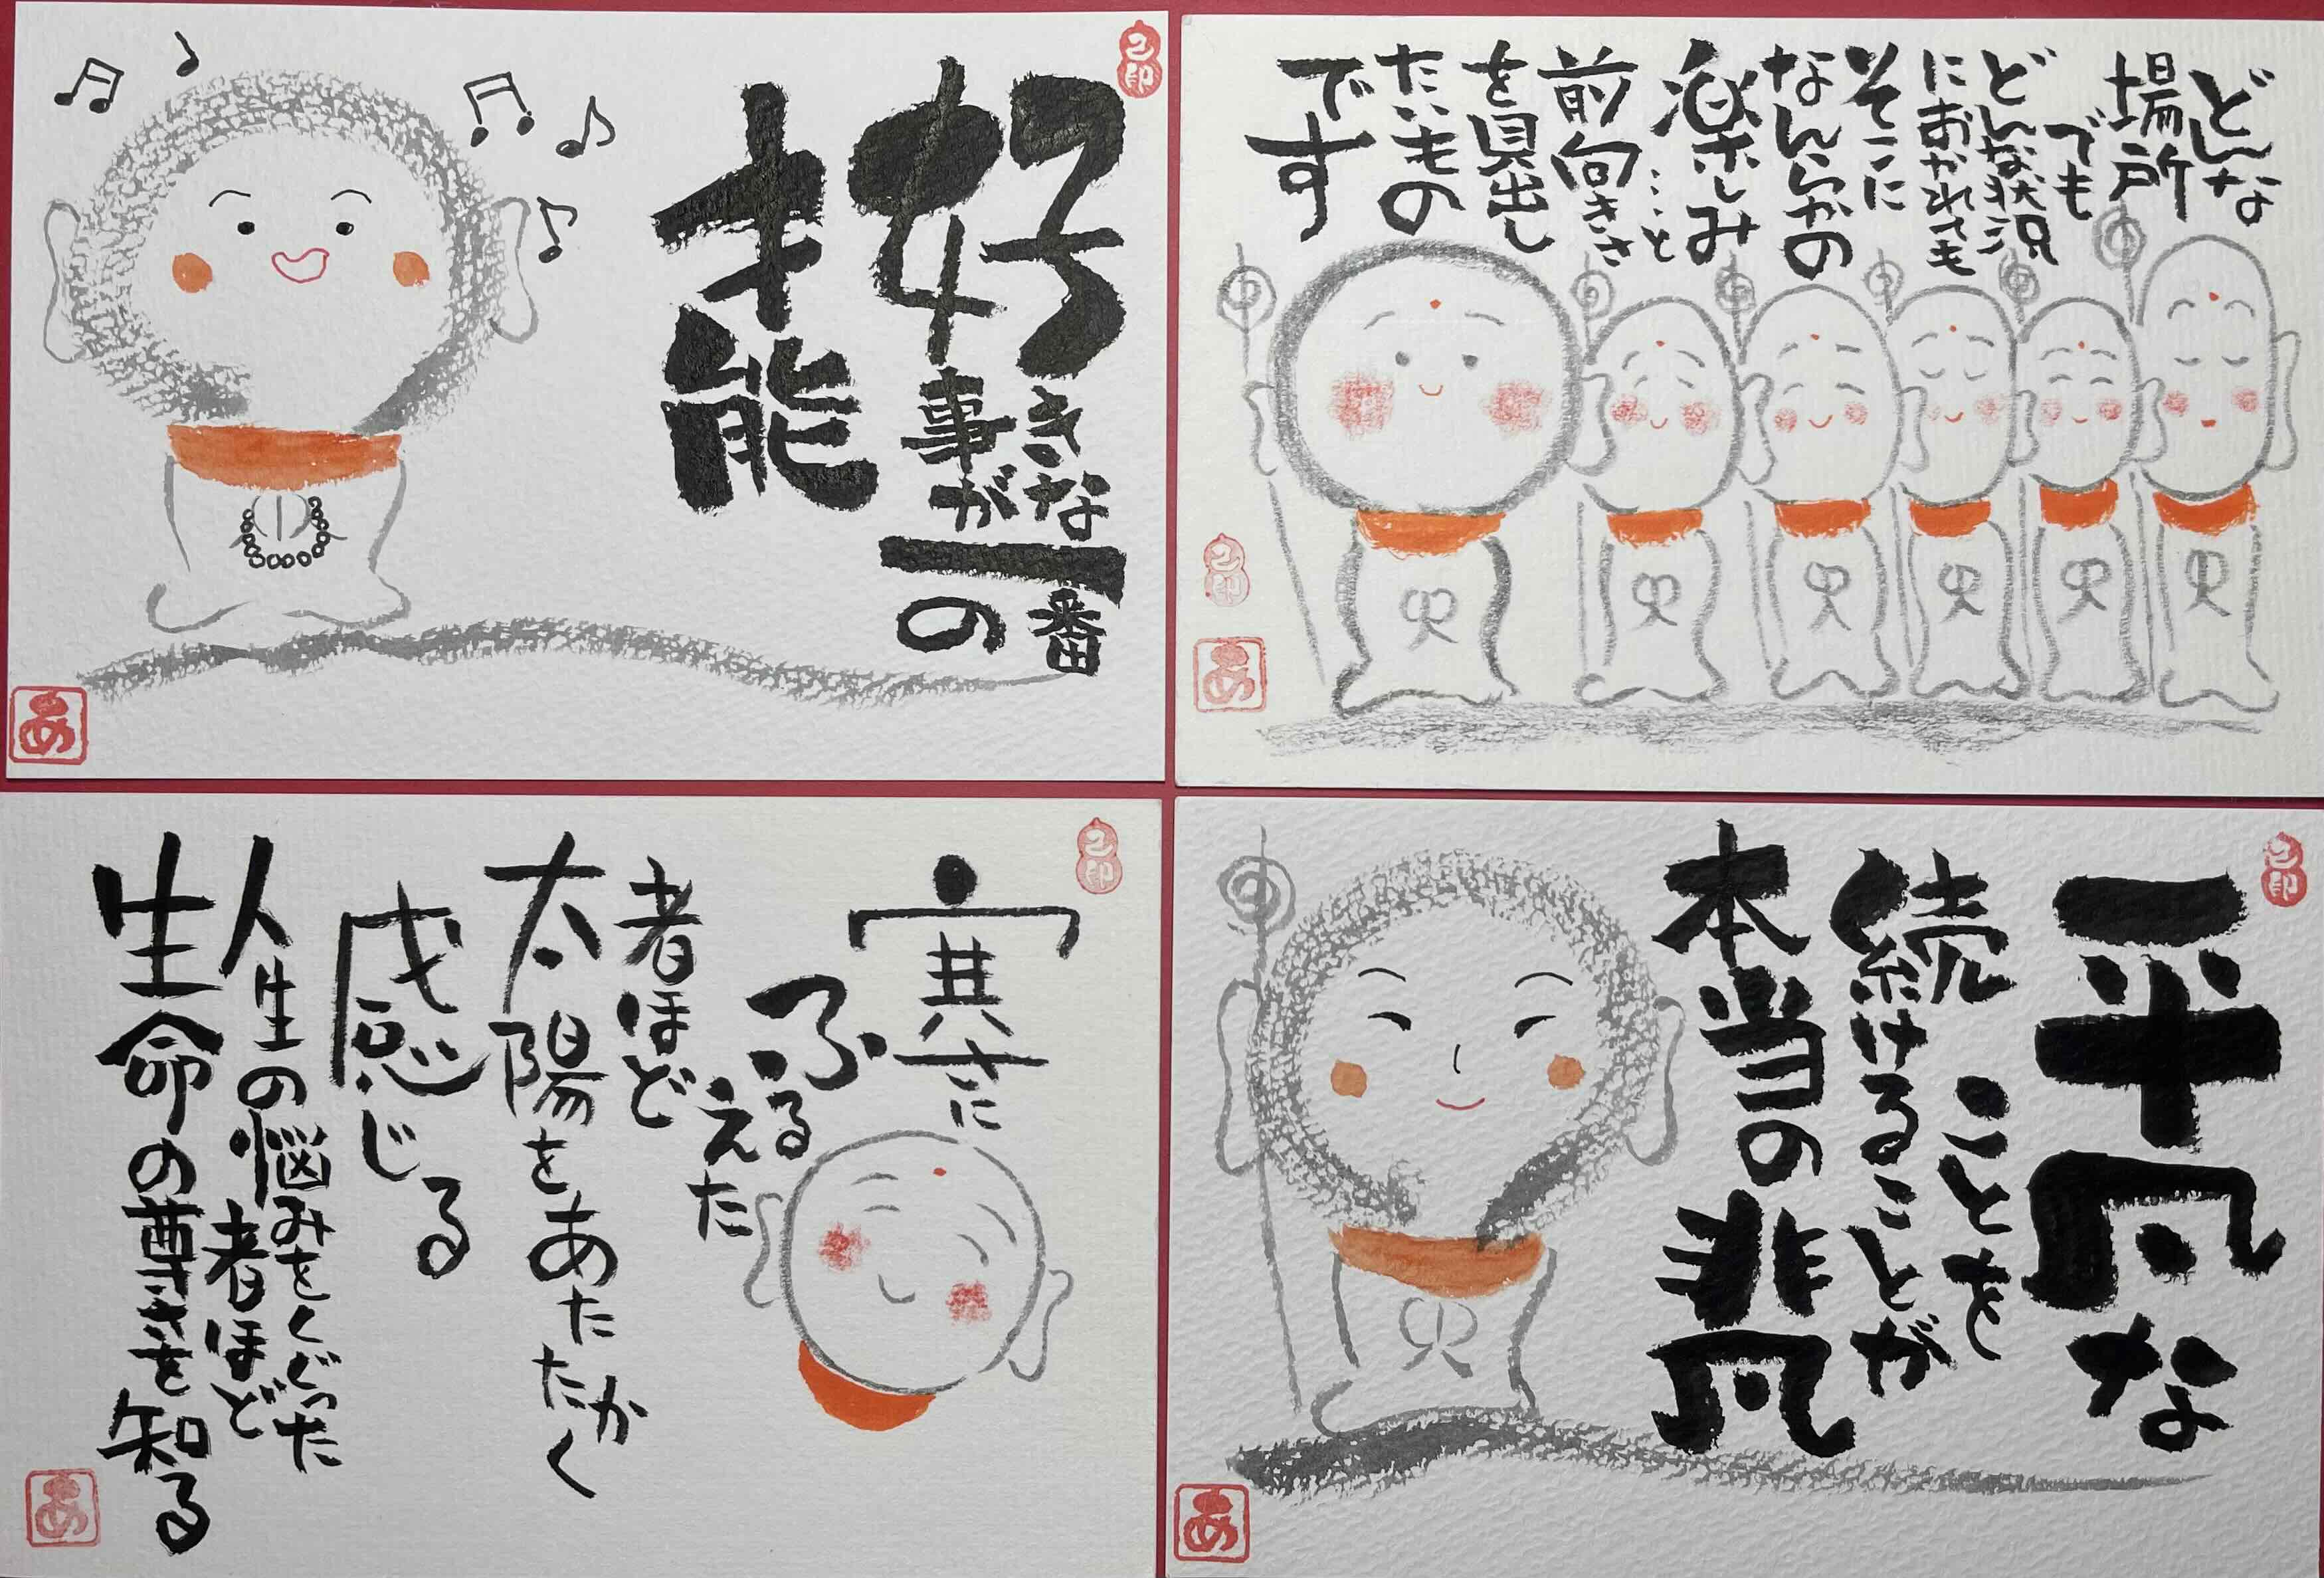 好きな
事が
一番
の
才能
どんな
場所
でも
どんな状況
におかれても
そこに
なんらかの
楽しみ
…こと
前向きさ
を見出し
たいもの
です
寒さに
ふるえた
者ほど
太陽をあたたかく
感じる
人生の悩みをくぐった
者ほど
生命の尊さを知る
平凡な
ことを
続けることが
本当の
非凡